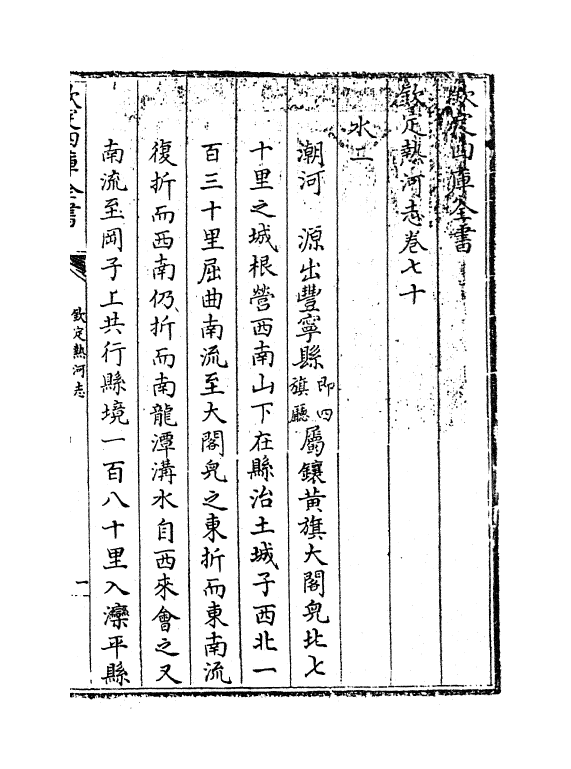 欽定四庫全書
欽定熱河志卷七十
水二
潮河　源出豐寧縣即四旗廳屬鑲黄旗大閣兒北七
十里之城根營西南山下在縣治土城子西北一
百三十里屈曲南流至大閣兒之東折而東南流
復折而西南仍折而南龍潭溝水自西來會之又
南流至岡子上共行縣境一百八十里入灤平縣
欽定四庫全書
欽定熱河志
一